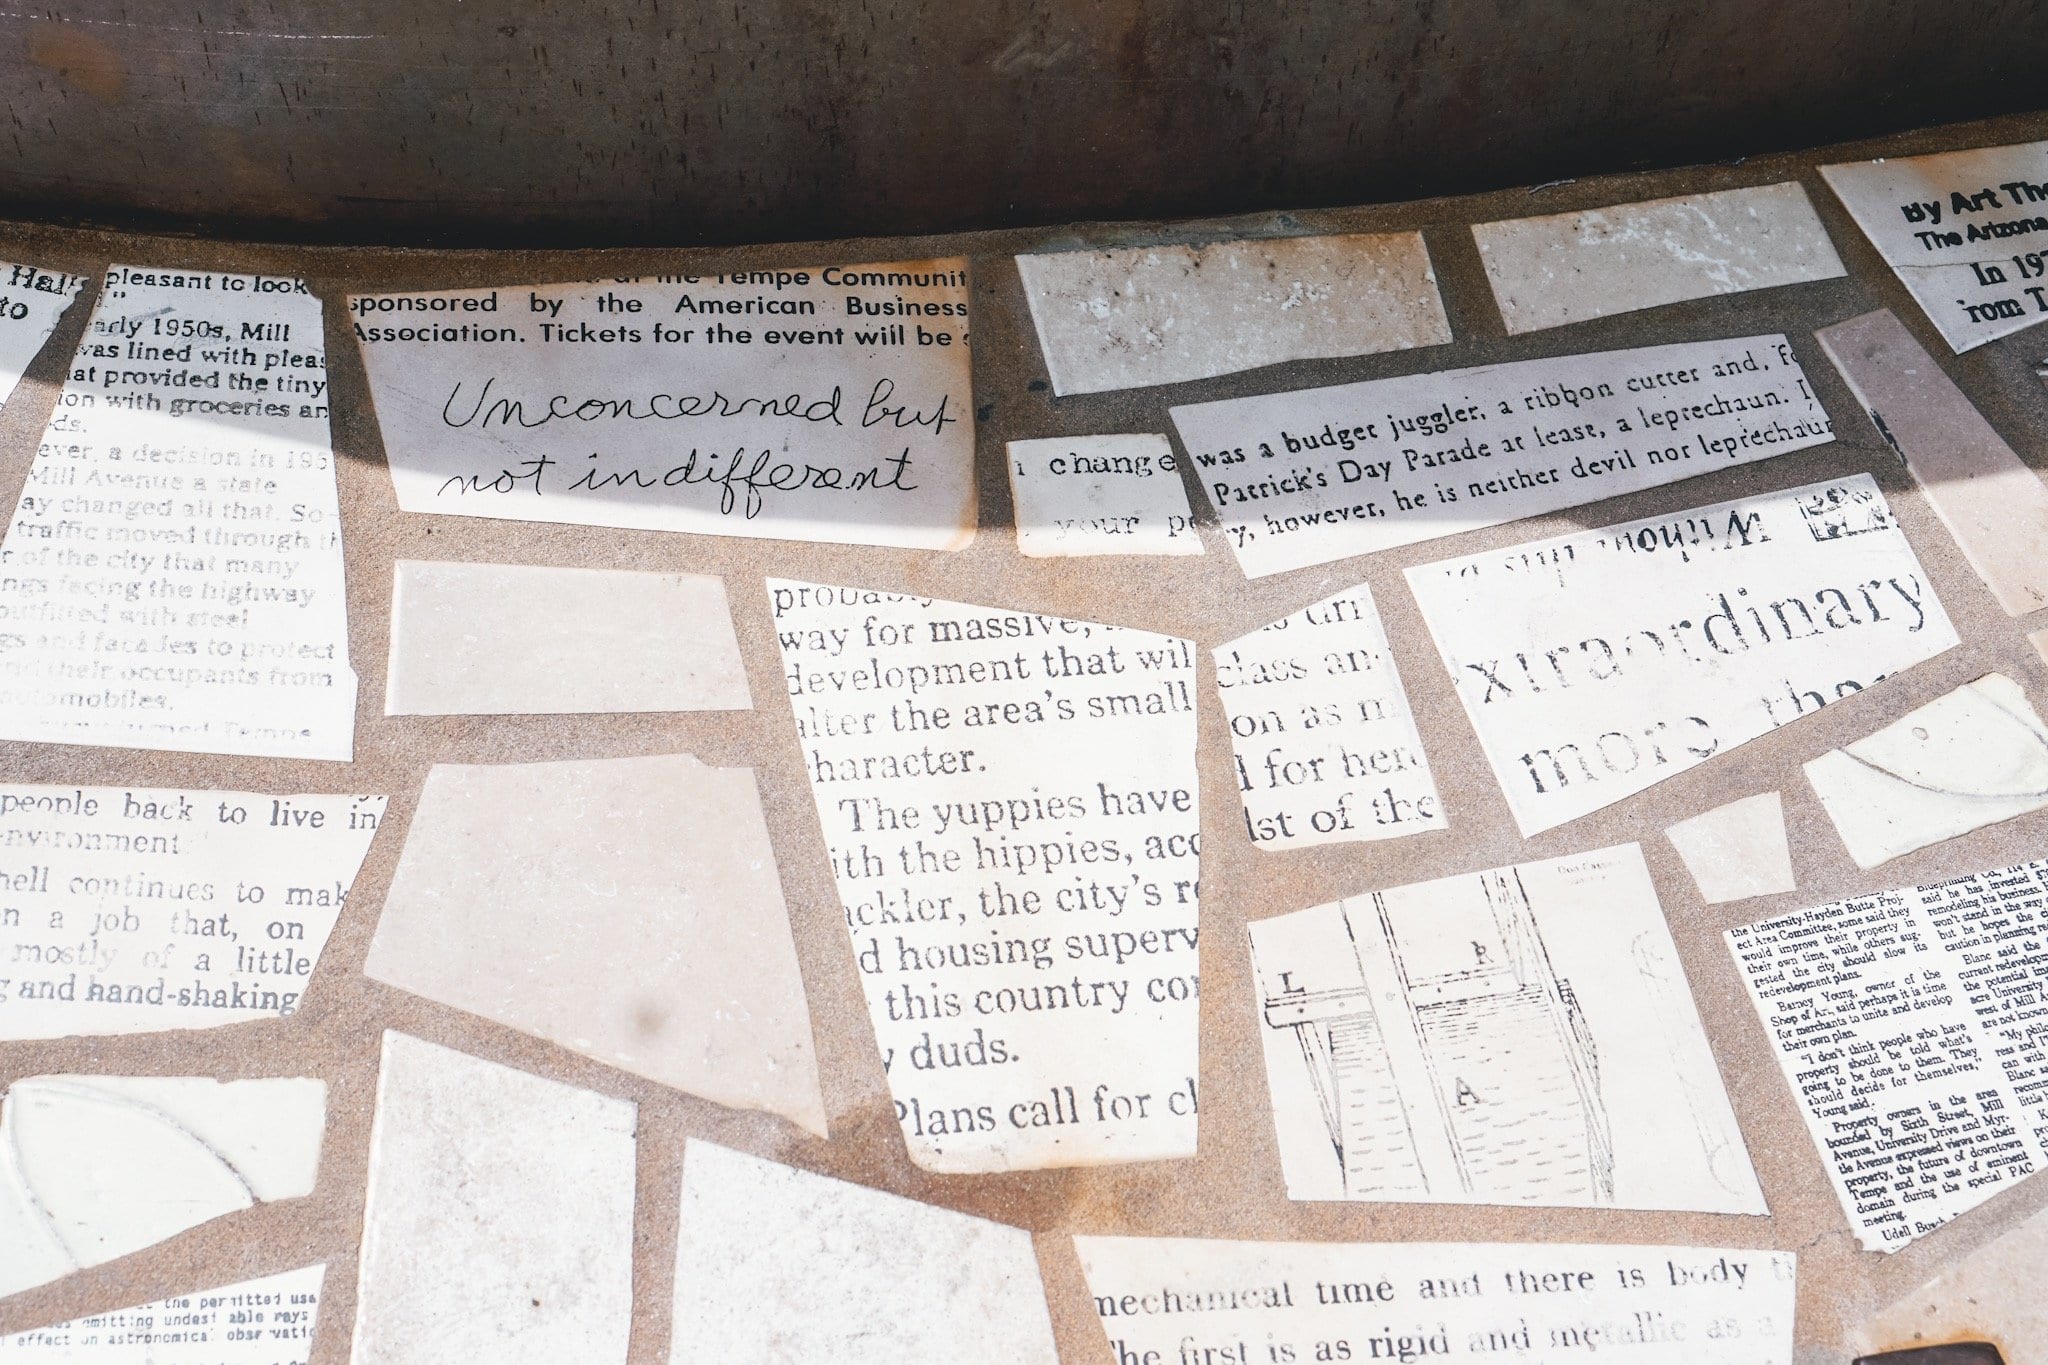 Hall
to
pleasant to look
"
early 1950s, Mill
was lined with pleas
hat provided the tiny
ion with groceries an
ds.
ever, a decision in 195
Mill Avenue a state
ay changed all that. So
traffic moved through th
r of the city that many
ngs facing the highway
outfitted with steel
gs and facades to protect
nd their occupants from
automobiles.
Tempe
the Tempe Communit
sponsored by the American Business
Association. Tickets for the event will be
Unconcerned but
not indifferent
change
your p
was a budget juggler, a ribbon cutter and, Fo
Patrick's Day Parade at least, a leprechaun. I
y, however, he is neither devil nor leprechaun
By Art Tho
The Arizona
In 197
from T
Without
extraordinary
more than
probably
way for massive,
development that wil
alter the area's small
character.
The yuppies have
ith the hippies, acc
ackler, the city's re
d housing superv
this country cor
y duds.
Plans call for cl
class an
on as m
d for here
lst of the
people back to live in
environment
hell continues to mak
n a job that, on
mostly of a little
g and hand-shaking
L
R
A
the University-Hayden Butte Proj-
ect Area Committee, some said they
would improve their property in
their own time, while others sug-
gested the city should slow its
redevelopment plans.
Barney Young, owner of the
Shop of Art, said perhaps it is time
for merchants to unite and develop
their own plan.
"I don't think people who have
property should be told what's
going to be done to them. They
should decide for themselves,"
Young said.
Property owners in the area
bounded by Sixth Street, Mill
Avenue, University Drive and Myr-
tle Avenue expressed views on their
property, the future of downtown
Tempe and the use of eminent
domain during the special PAC
meeting.
Udell
Blueprinting Co., 114 E.
said he has invested $7
remodeling his business. H
won't stand in the way o
but he hopes the ci
caution in planning re
Blanc said the
current redevelopm
the potential imp
acre University
west of Mill A
are not known
"My philo
ress and I'l
can with
Blanc sa
recomm
little b
the permitted usa
emitting undesi able rays
effect on astronomical observatio
mechanical time and there is body t
The first is as rigid and metallic as a